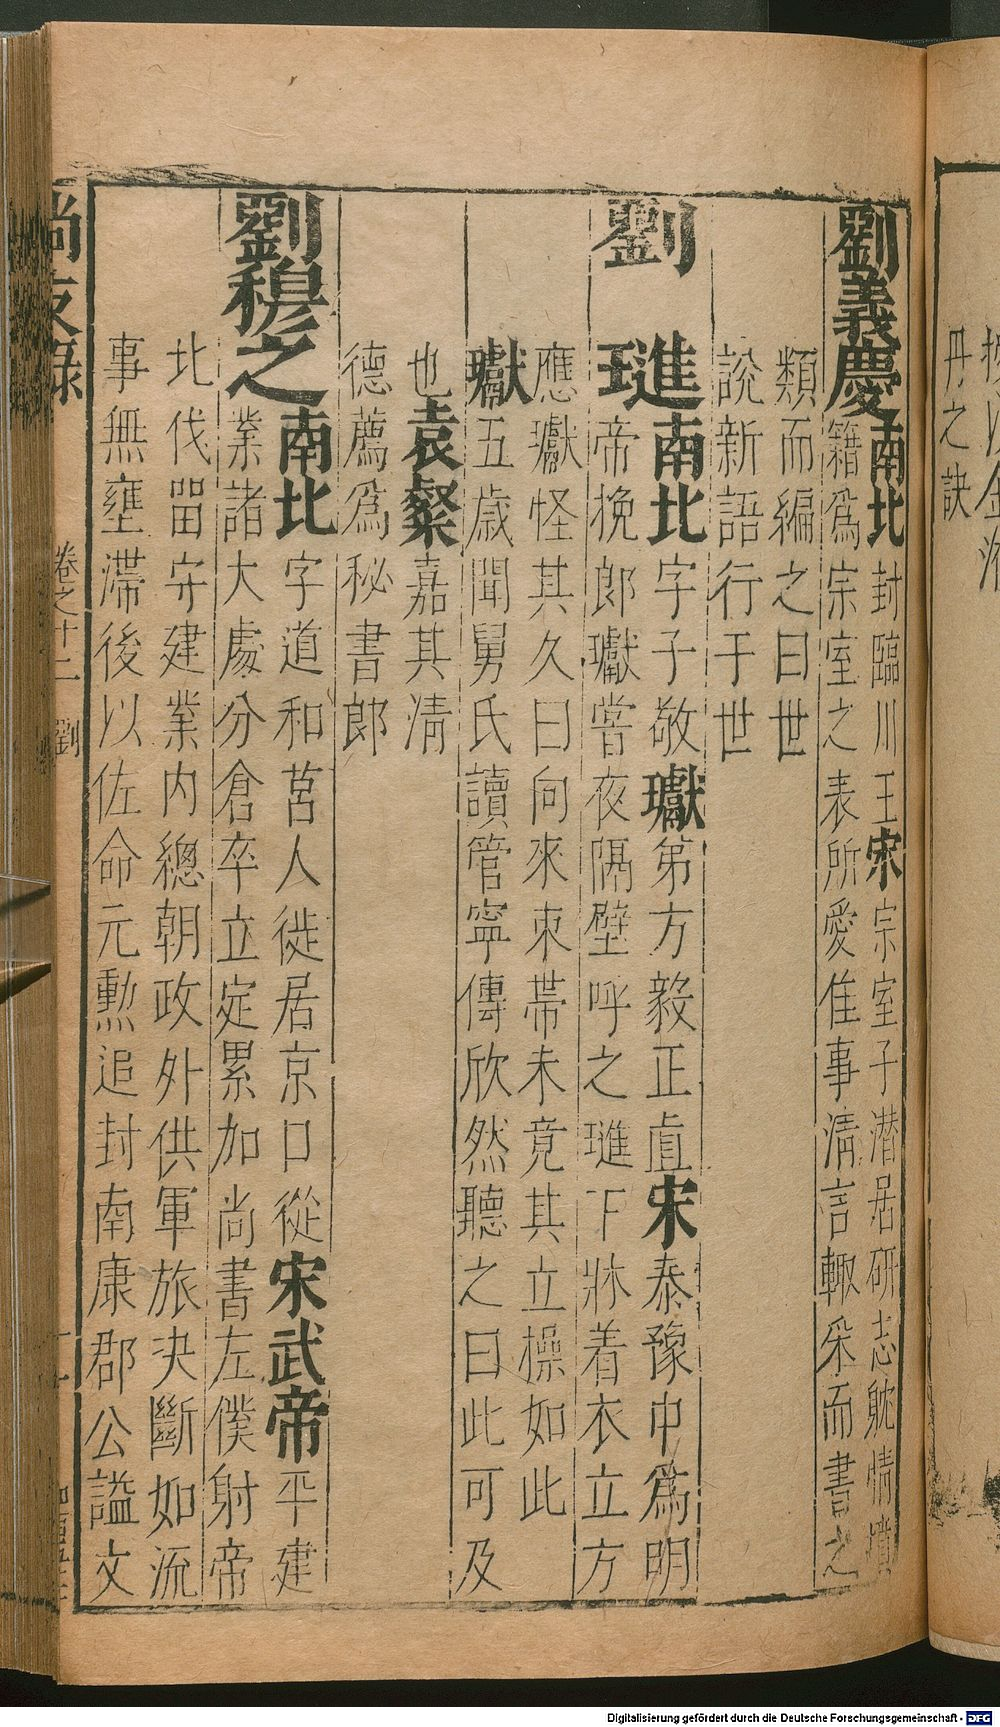 丹之訣
劉義慶南北封臨川王宋宗室子潛居研志躭情墳
籍爲宗室之表所愛惟事清言輙采而書之
類而編之曰世
說新語行于世
劉璡南北字子敬瓛第方毅正直宋泰豫中爲明
帝挽郎瓛嘗夜隔壁呼之璡下牀着衣立方
應瓛怪其久曰向來束帶未竟其立操如此
瓛五歲聞舅氏讀管寧傳欣然聽之曰此可及
也袁粲嘉其清
德薦爲秘書郎
劉穆之南北字道和莒人徙居京口從宋武帝平建
業諸大處分倉卒立定累加尚書左僕射帝
北伐留守建業内總朝政外供軍旅決斷如流
事無壅滯後以佐命元勲追封南康郡公謚文
尚友錄 卷之十二 劉
Digitalisierung gefördert durch die Deutsche Forschungsgemeinschaft - DFG